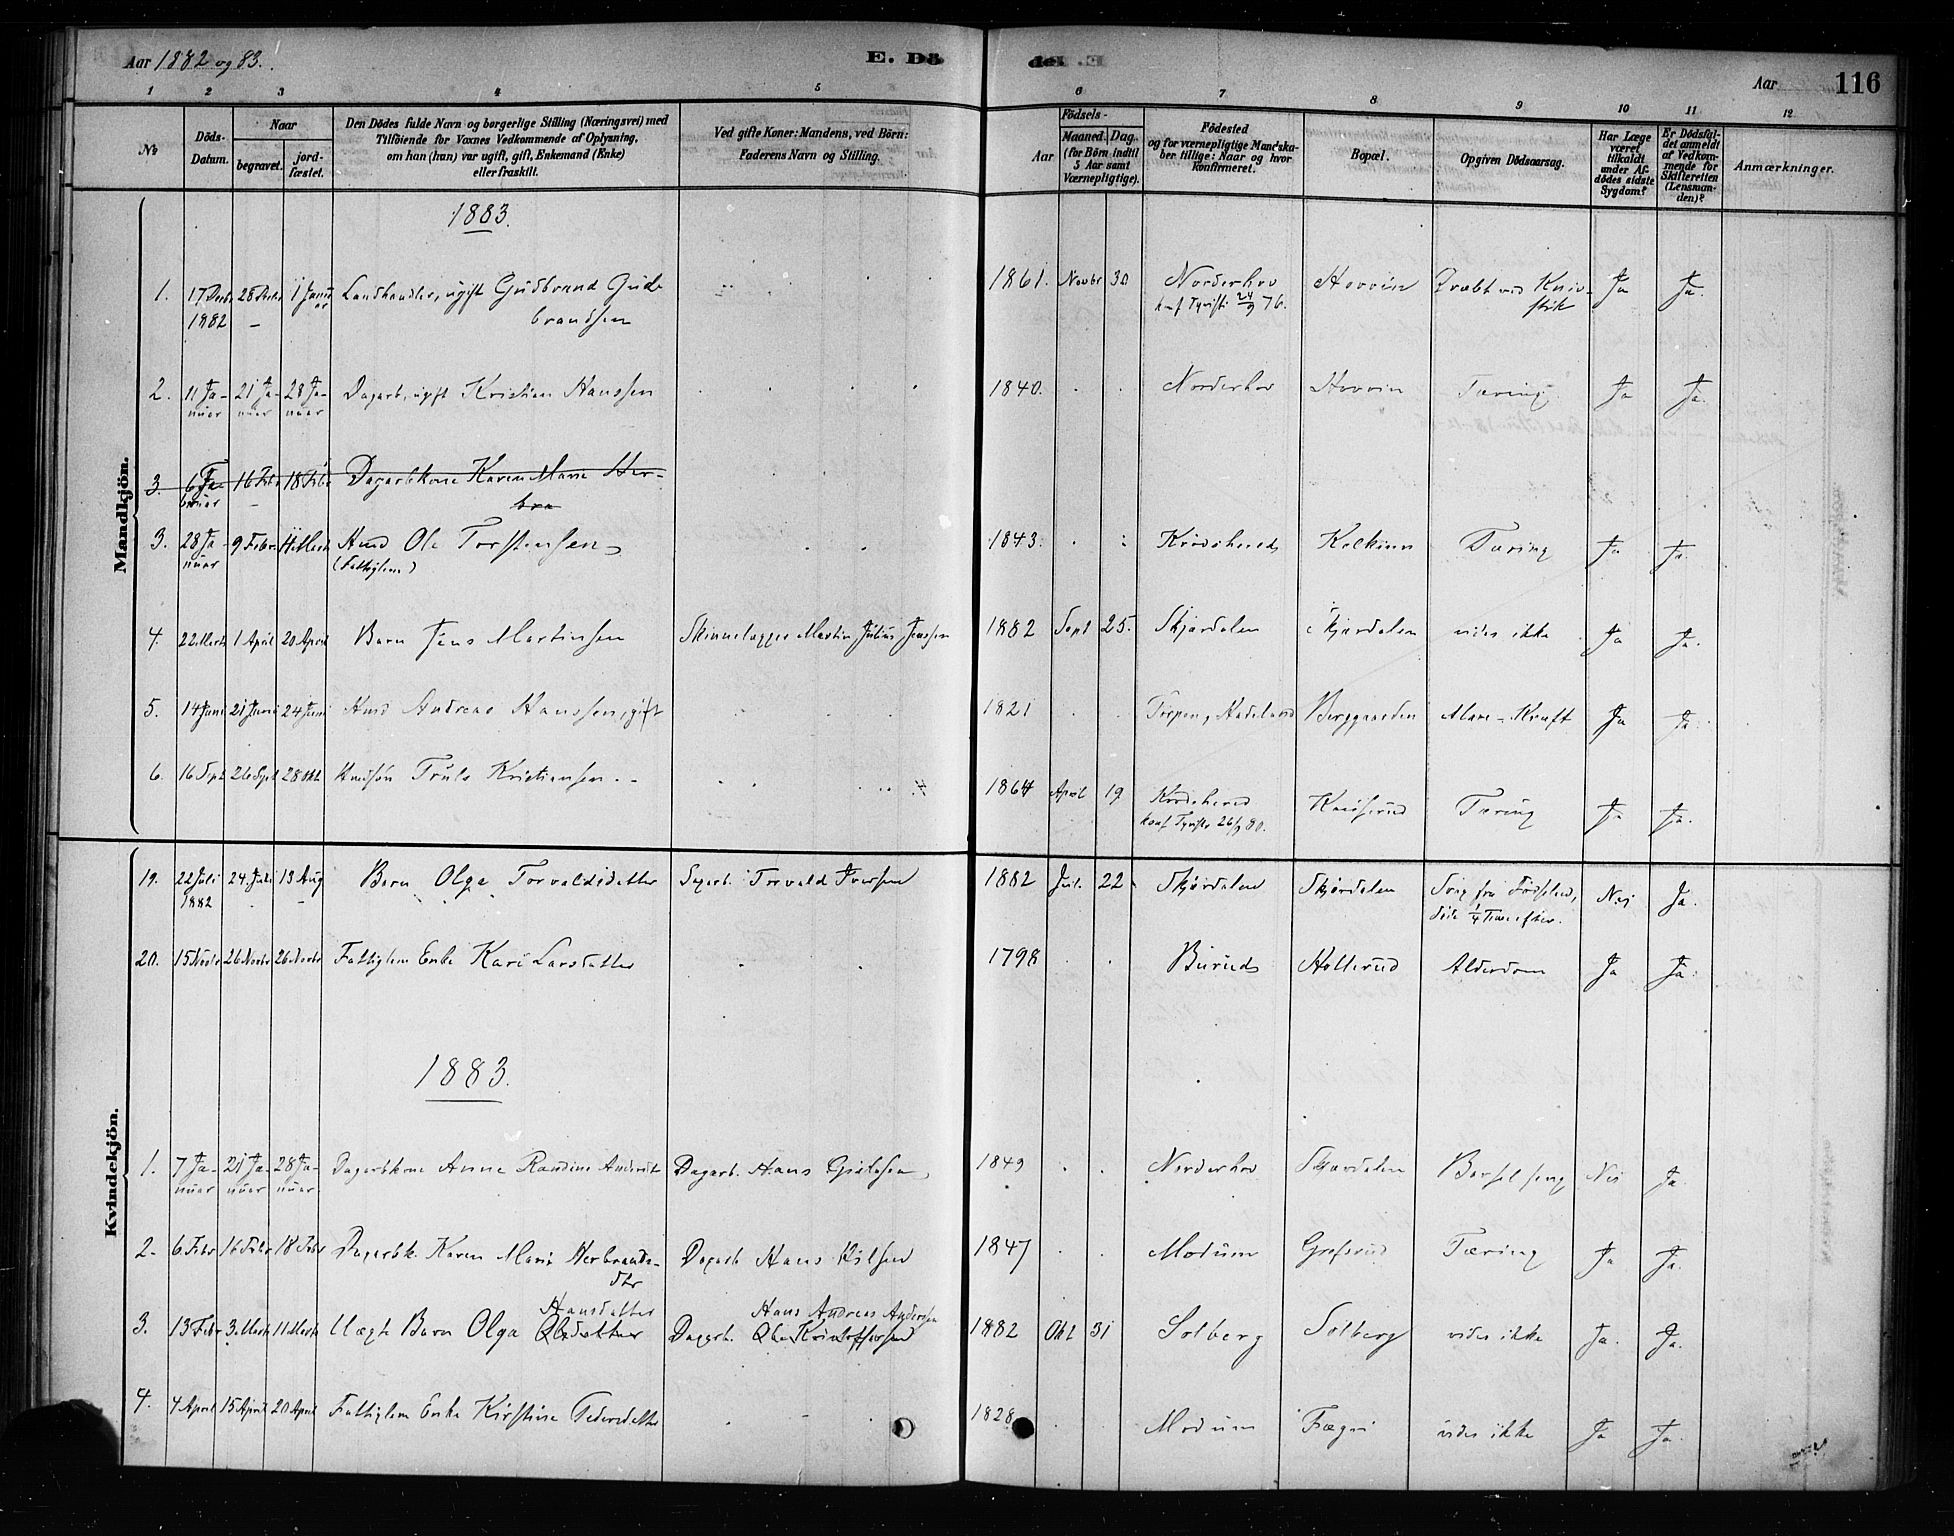 Aar 1882 og 83.
E. Dö
de.
Aar
116
1 2 3 4 5 6 7 8 9 10 11 12
№
Döds-Datum.
Naar
begravet.
jord-fæstet.
Den Dödes fulde Navn og borgerlige Stilling (Næringsvei) med
Tilföiende for Voxnes Vedkommende af Oplysning,
om han (hun) var ugift, gift, Enkemand (Enke)
eller fraskilt.
Ved gifte Koner: Mandens, ved Börn:
Faderens Navn og Stilling.
Födsels-
Aar
Maaned. Dag.
(for Börn indtil
5 Aar samt
Værnepligtige).
Födested
og for værnepligtige Mandska-
ber tillige: Naar og hvor
konfirmeret.
Bopæl.
Opgiven Dödsaarsag.
Har Læge
været
tilkaldt
under Af-
dödes sidste
Sygdom?
Er Dödsfal-
det anmeldt
af Vedkom-
mende for
Skifteretten
(Lensman-
den)?
Anmærkninger.
Mandkjön.
1883.
1. 17 Decbr 28 Decbr 1 Janu Landhandler, ugift Gudbrand Gud- 1861. Novbr 30 Norderhov Hovvin Dræbt ved Kniv- Ja Ja.
1882 – ar brandsen konf Tyrist. 24/9 76. stik
2. 11 Ja- 21 Ja- 28 Ja- Dagarb, ugift Kristian Hanssen 1840. Norderhov Hovvin Tæring Ja Ja.
nuar nuar nuar
3. 6 Fe- 16 Febr 18 Febr Dagarbkone Karen Marie Her-
bruar bra
3. 28 Ja- 9 Febr. 11 Marts Hmd Ole Torstensen 1843. Krödsherred Kolkinn Tæring Ja Ja.
nuar (Fattiglem)
4. 22 Marts 1 April 20 April Barn Jens Martinsen Skinnelægger Martin Julius Jenssen 1882 Sept 25. Skjærdalen Skjærdalen vides ikke Ja Ja.
5. 14 Juni 21 Juni 24 Juni Hmd Andreas Hanssen, gift 1821 Torpen, Hadeland Berggaarden Mave-Kræft Ja Ja.
6. 16 Spt 26 Spt 28 Okt Hmdsön Truls Kristiansen 1864 April 19 Krödsherred Knüserud Tæring Ja Ja.
konf Tyristr 26/9 80.
Kvindekjön.
19. 22 Juli 24 Juli 13 Aug Barn Olga Torvaldsdatter Sagarb. Torvald Iversen 1882 Jul. 22 Skjærdalen Skjærdalen Svag fra Födselen, Nei Ja.
1882 döde 1/4 Time efter.
20. 15 Novbr 26 Novbr 26 Novbr Fattiglem Enke Kari Larsdatter 1798 Burud Hollerud Alderdom Ja Ja.
1883.
1. 7 Ja- 21 Ja- 28 Ja- Dagarbkone Anne Randine Andersdt Dagarb. Hans 1849 Norderhov Skjærdalen Barselseng Nei Ja.
nuar nuar nuar
2. 6 Febr 16 Febr 18 Febr Dagarbk. Karen Marie Herbrands- Dagarb Hans Nilsen 1847 Modum Grefsrud Tæring Ja Ja.
dtr
Hansdatter Hans Andreas Andersen
3. 13 Febr 3. Marts 11 Marts Uægte Barn Olga Olsdatter Dagarb. Ole Kristoffersen 1882 Okt 31 Solberg Solberg vides ikke Ja. Ja.
4. 4 April 15 April 20 April Fattiglem Enke Kirstine Pedersdatter 1828 Modum Fægri vides ikke Ja Ja.